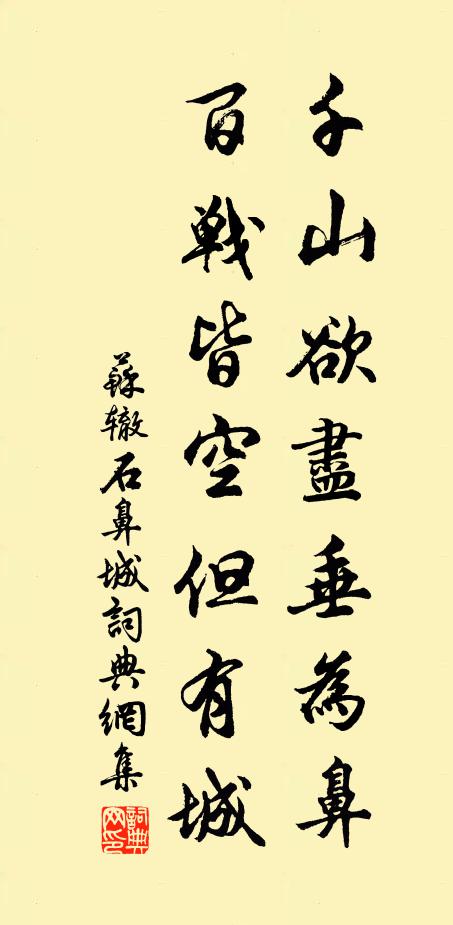 千山欲盡垂為鼻
百戰皆空但有城
蘇辙石鼻城詞典網集
詞典网印